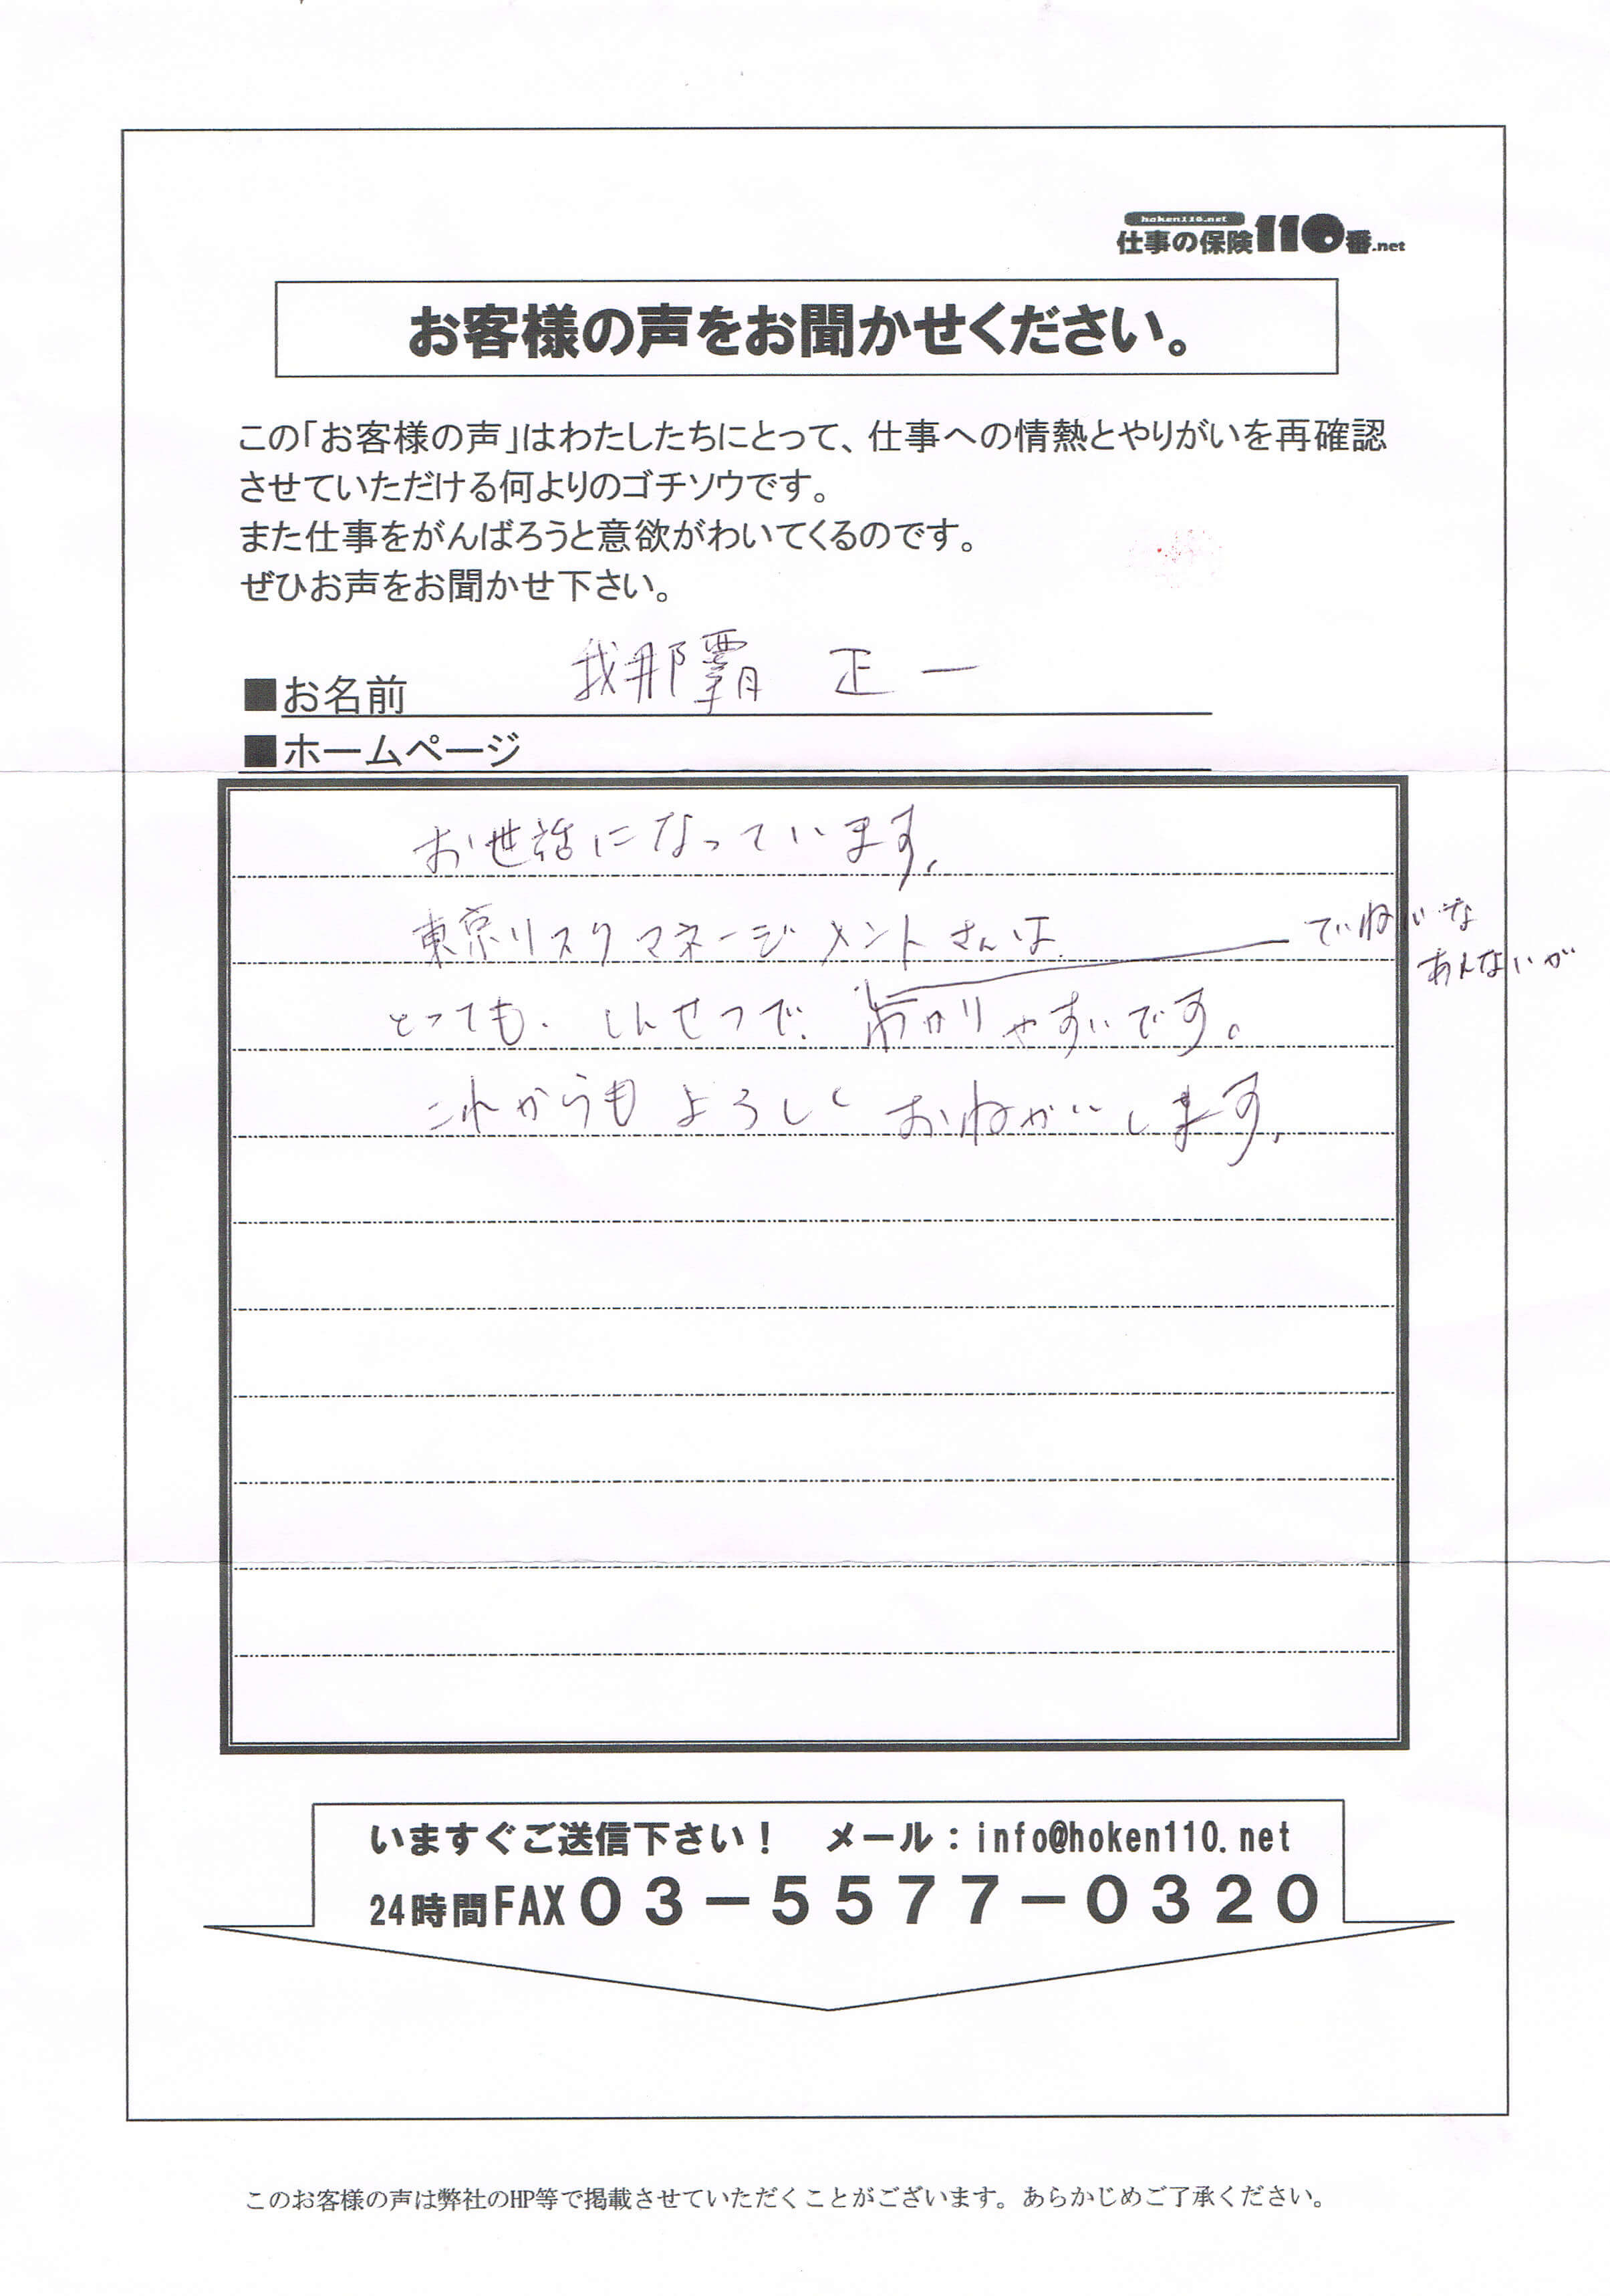 hoken110.net
仕事の保険110番.net
お客様の声をお聞かせください。
この「お客様の声」はわたしたちにとって、仕事への情熱とやりがいを再確認
させていただける何よりのゴチソウです。
また仕事をがんばろうと意欲がわいてくるのです。
ぜひお声をお聞かせ下さい。
■お名前 我那覇 正一
■ホームページ
お世話になっています。
東京リスクマネージメントさんは、
ていねいな
あんないが
とっても、しんせつで、わかりやすいです。
これからもよろしくおねがいします。
いますぐご送信下さい! メール:info@hoken110.net
24時間FAX03-5577-0320
このお客様の声は弊社のHP等で掲載させていただくことがございます。あらかじめご了承ください。